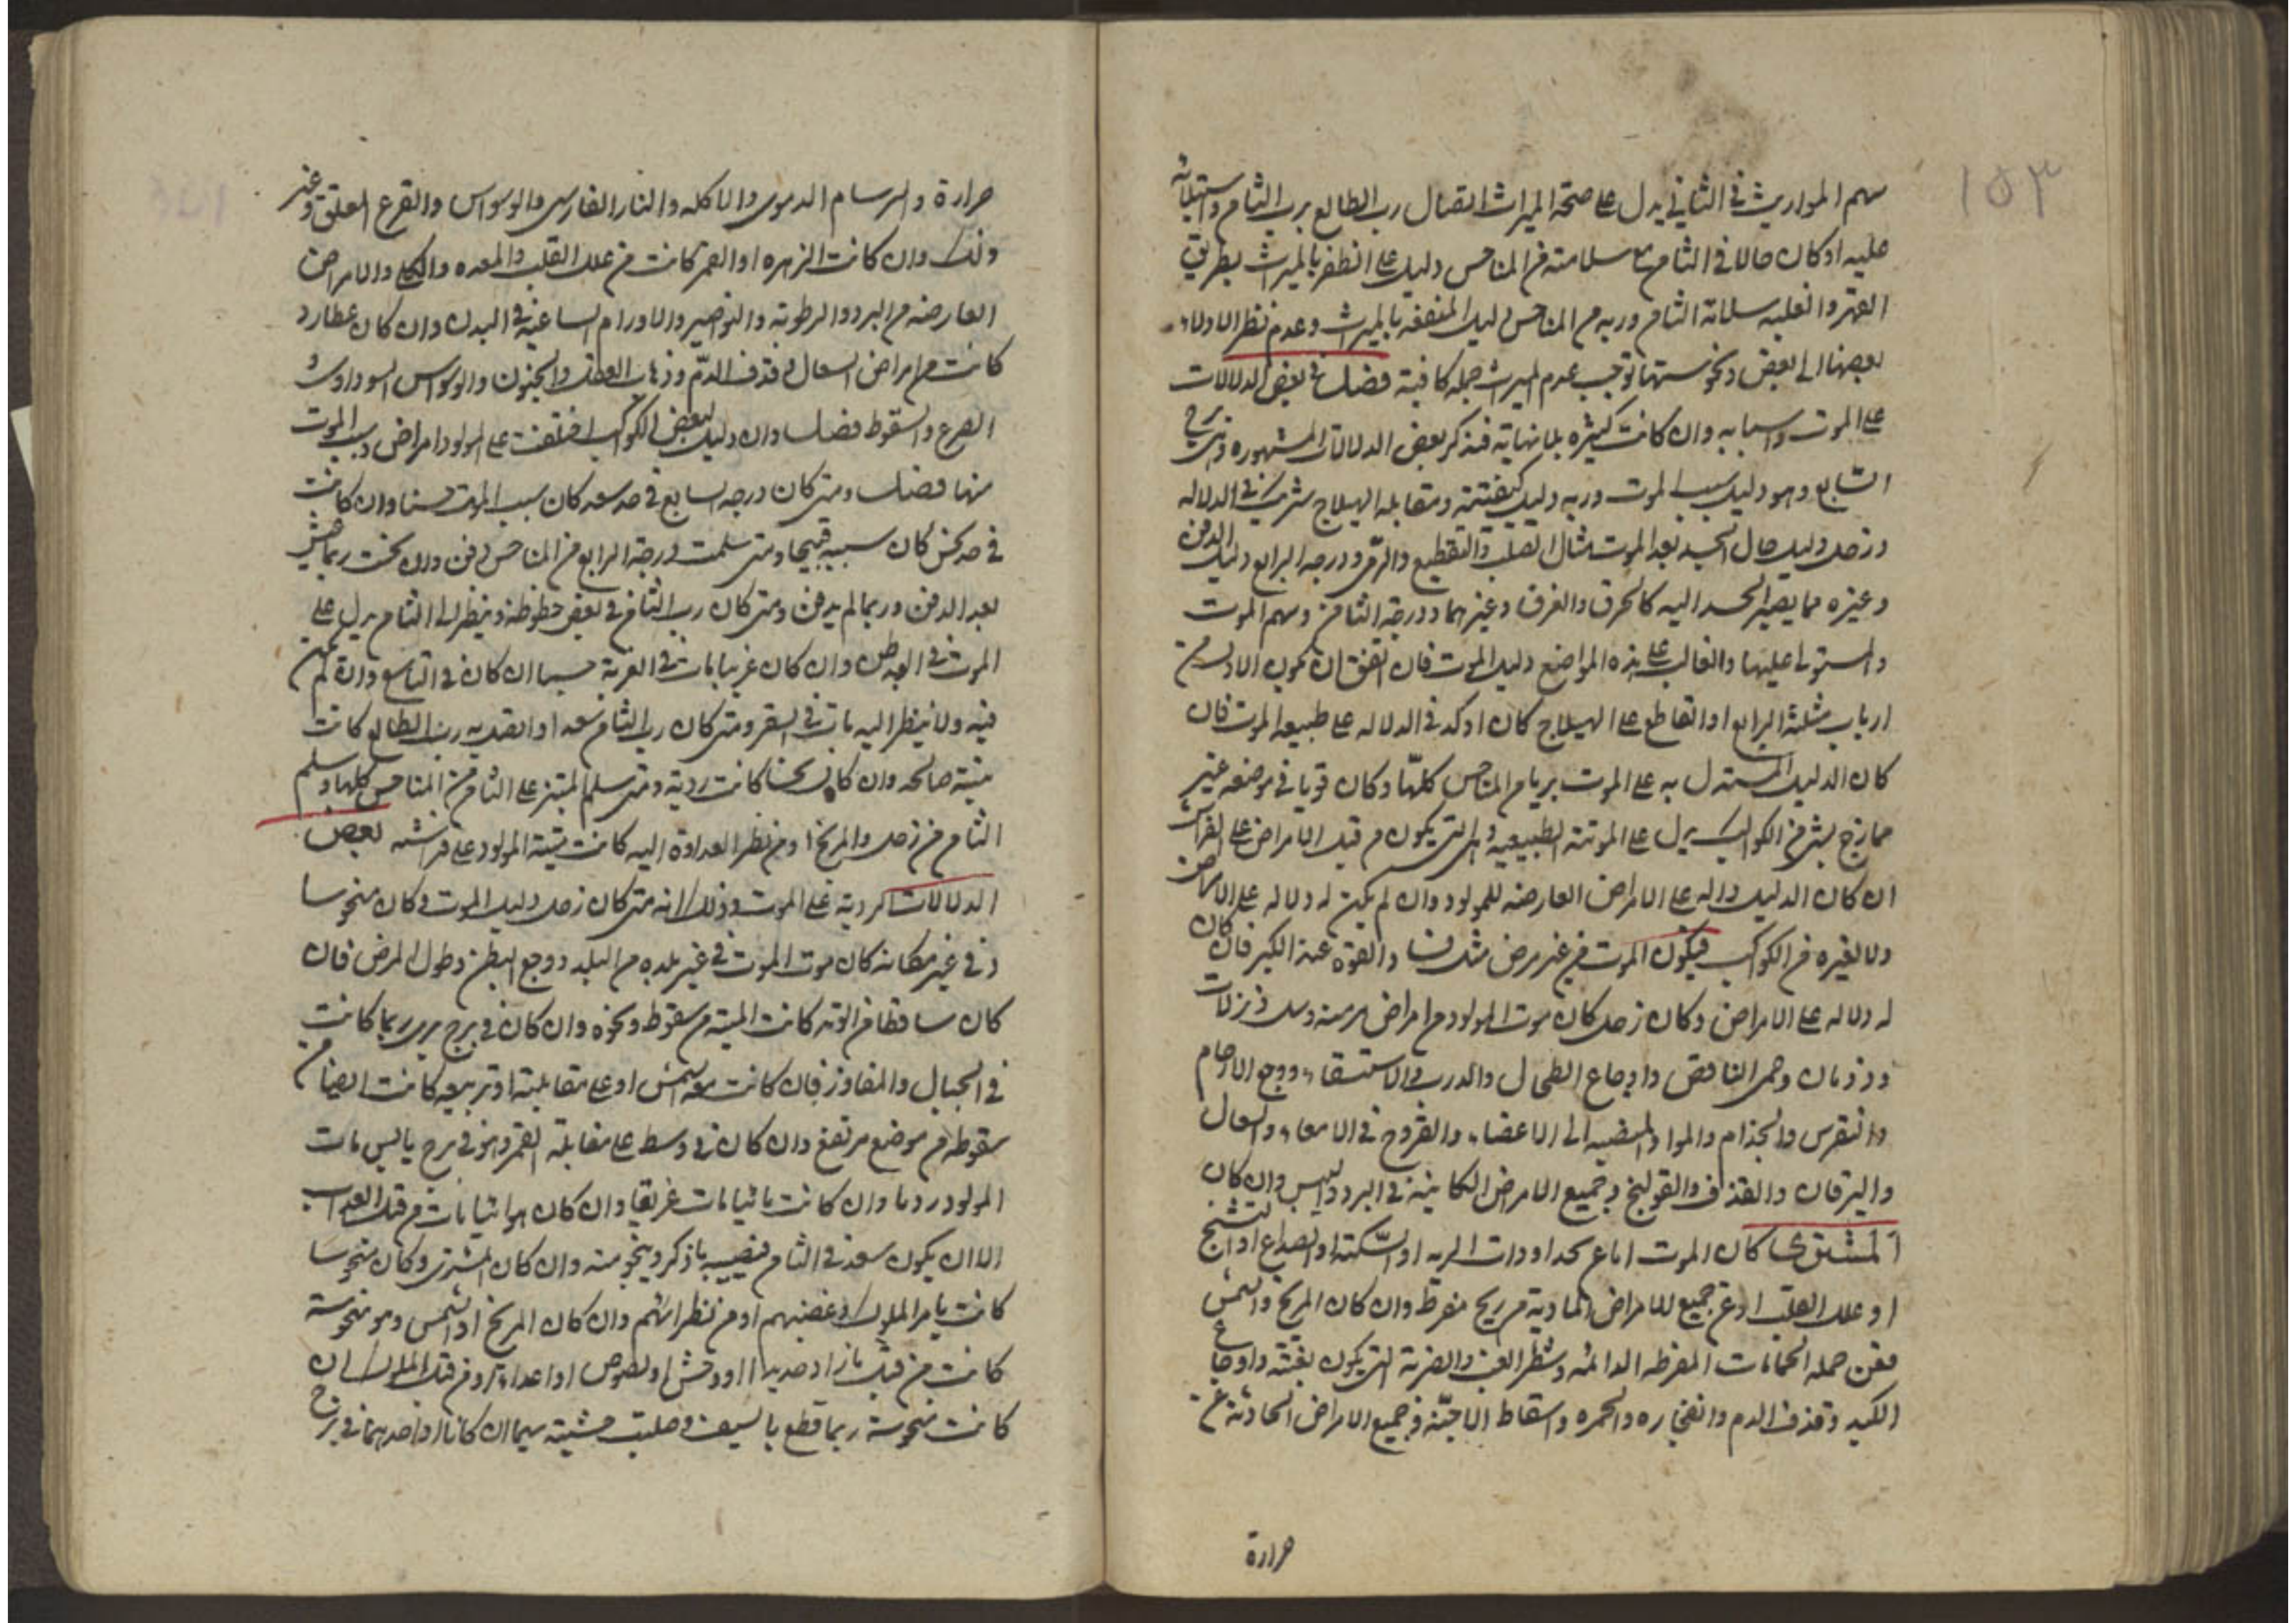 ١٥٣
سهم المواريث في الثاني يدل على صحة الميراث اتصال رب الطالع برب الثامن واستيلائه
عليه او كان حالا في الثامن مع سلامته من المناحس دليل على الظفر بالميراث بطريق
القهر والغلبه سلامة الثامن وربه من المناحس دليل المنفعه بالميراث وعدم نظر الادلاء
بعضها الى بعض ونحوستها توجب عدم الميراث جمله كافية فصل في بعض الدلالات
على الموت واسبابه وان كانت كثيره بلا نهاية فنذكر بعض الدلالات المشهوره وهي برج
السابع وهو دليل سبب الموت وربه دليل كيفيته ومقابله الهيلاج شريك في الدلاله
وزحل دليل حال الجسد بعد الموت مثال الصلب والتقطيع والرمي ودرجه الرابع دليل الدفن
وغيره مما يصير الجسد اليه كالحرق والغرق وغيرهما ودرجة الثامن وسهم الموت
والمستولى عليها والغالب على هذه المواضع دليل الموت فان اتفق ان يكون الاول من
ارباب مثلثة الرابع او القاطع على الهيلاج كان اوكد في الدلاله على طبيعه الموت فان
كان الدليل المستدل به على الموت بريا من المناحس كلها وكان قويا في موضعه غير
ممازج بشئ من الكواكب يدل على الموتة الطبيعيه وهي التي يكون من قبل الامراض على الفراش
ان كان الدليل دالة على الامراض العارضه للمولود وان لم يكن له دلاله على الامراض
ولا لغيره من الكواكب فيكون الموت من غير مرض والقوة عند الكبر فان كان
له دلاله على الامراض وكان زحل كان موت المولود من امراض مزمنة وسل ونزلات
وذوبان وحمى النافض واوجاع الطحال والدرب والاستسقاء ووجع الارحام
والنقرس والجذام والمواد المنصبه الى الاعضاء والقروح في الامعاء والسعال
واليرقان والقذف والقولنج وجميع الامراض الكاينة في البرد واليبس وان كان
المشترى كان الموت اما عن او ذات الريه او السكته او الصداع او التشنج
او علل القلب او عن جميع الامراض المادية من ريح مفرط وان كان المريخ والشمس
فمن جمله الحمايات المفرطه الدائمه وشطر الغب والضربة التي يكون بغتة واوجاع
الكبد وقذف الدم وانفجاره والحمره واسقاط الاجنة وجميع الامراض الحادثة عن
حرارة
حرارة والبرسام الدموى والاكله والنار الفارسى والوسواس والقرع المعلق وغير
ذلك وان كانت الزهره او القمر كانت من علل القلب والمعده والكلى والامراض
العارضه من البرد والرطوبة والنواصير والاورام الساعية في البدن وان كان عطارد
كانت من امراض السعال وقذف الدم وذهاب العقل والجنون والوسواس السوداوى و
الصرع والسقوط فصل وان دليل بعض الكواكب اختلفت على المولود امراض وسبب الموت
منها فصل ومتى كان درجه السابع في حد سعد كان سبب الموت حسنا وان كانت
في حد نحس كان سببه قبيحا ومتى سلمت درجة الرابع من المناحس دفن وان نحست ربما نبش
بعد الدفن وربما لم يدفن ومتى كان رب الثامن في بعض حظوظه وينظر الى الثامن يدل على
الموت في الوطن وان كان غريبا مات في الغربة سيما ان كان في التاسع وان لم يكن
فيه ولا ينظر اليه مات في السفر ومتى كان رب الثامن سعدا واتصل به رب الطالع كانت
ميتة صالحه وان كان نحسا كانت ردية ومتى سلم المبتز على الثامن من المناحس كلها وسلم
الثامن من زحل والمريخ او من نظر العداوة اليه كانت ميتة المولود على فراشه بعض
الدلالات الردية على الموت وذلك انه متى كان زحل دليل الموت وكان منحوسا
وفي غير مكانه كان موت الموت في غير بلده من البلد ووجع البطن وطول المرض فان
كان ساقطا من الوتد كانت الميتة من سقوط ونحوه وان كان في برج بري ربما كانت
في الجبال والمفاوز فان كانت معه الشمس او على مقابلته او تربيعه كانت ايضا من
سقوطه من موضع مرتفع وان كان في وسط على مقابلة القمر وهو في برج يابس مات
المولود ردما وان كانت مائيا مات غريقا وان كان هوائيا مات من قبل العذاب
الا ان يكون سعد في الثامن فيصيبه ما ذكر وينجو منه وان كان المشترى وكان منحوسا
كانت يامر الملوك وغضبهم او من نظرائهم وان كان المريخ او الشمس وهو منحوسة
كانت من قبل نار او حديد او وحش او لصوص او اعداء ومن قبل الملوك ان
كانت منحوسة ربما قطع بالسيف وصلبت ميتته سيما ان كانا او احدهما في برج